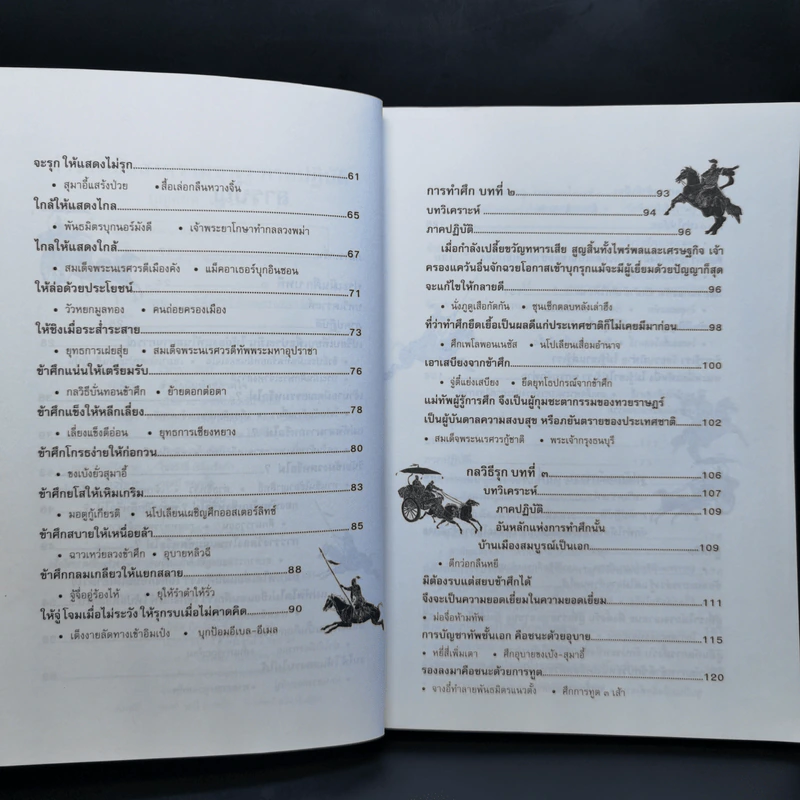 จะรุก ให้แสดงไม่รุก 61
• สุมาอี้แสร้งป่วย • สื้อเล่อกลืนหวางจิ้น
ใกล้ให้แสดงไกล 65
• พันธมิตรบุกนอร์มังดี • เจ้าพระยาโกษาทำกลลวงพม่า
ไกลให้แสดงใกล้ 67
• สมเด็จพระนเรศวรตีเมืองคัง • แม็คอาเธอร์บุกอินชอน
ให้ล่อด้วยประโยชน์ 71
• วัวทยกมูลทอง • คนถ่อยครองเมือง
ให้ชิงเมื่อระส่ำระสาย 73
• ยุทธการเฝยสุ่ย • สมเด็จพระนเรศวรตีทัพพระมหาอุปราชา
ข้าศึกแน่นให้เตรียมรับ 76
• กลวิธีบั่นทอนข้าศึก • ย้ายตอกต่อตา
ข้าศึกแข็งให้หลีกเลี่ยง 78
• เลี่ยงแข็งตีอ่อน • ยุทธการเซียงหยาง
ข้าศึกโกรธง่ายให้ก่อกวน 80
• ขงเบ้งยั่วสุมาอี้
ข้าศึกยโสให้เหิมเกริม 83
• มอตูกู้เกียรติ • นโปเลียนเผชิญศึกออสเตอร์ลิทซ์
ข้าศึกสบายให้เหนื่อยล้า 85
• ฉาวเหว่ยลวงข้าศึก • อุบายหลิวฉี
ข้าศึกกลมเกลียวให้แยกสลาย 88
• จู้จี่อยู่ร้องไห้ • ยุให้รำตำให้รั่ว
ให้จู่ โจมเมื่อไม่ระวัง ให้รุกรบเมื่อไม่คาดคิด 90
• เติ้งงายลัดทางเข้าอิมเป๋ง • บุกป้อมอีเบล-อีเมล
การทำศึก บทที่ ๒ 93
บทวิเคราะห์ 94
ภาคปฏิบัติ 96
เมื่อกำลังเปลี้ยขวัญทหารเสีย สูญสิ้นทั้งไพร่พลและเศรษฐกิจ เจ้า
ครองแคว้นอื่นจักฉวยโอกาสเข้าบุกรุกแม้จะมีผู้เยี่ยมด้วยปัญญาก็สุด
จะแก้ไขให้กลายดี 96
• นั่งภูดูเสือกัดกัน • ซุนเซ็กตลบหลังเล่าฮึง
ที่ว่าทำศึกยืดเยื้อเป็นผลดีแก่ประเทศชาติก็ไม่เคยมีมาก่อน 98
• ศึกเพโลพอนเนซัส • นโปเลียนเสื่อมอำนาจ
เอาเสบียงจากข้าศึก 100
• จู่ตี้แย่งเสบียง • ยึดยุทโธปกรณ์จากข้าศึก
แม่ทัพผู้รู้การศึก จึงเป็นผู้กุมชะตากรรมของทวยราษฎร์
เป็นผู้บันดาลความสงบสุข หรือภยันตรายของประเทศชาติ 102
• สมเด็จพระนเรศวรกู้ชาติ • พระเจ้ากรุงธนบุรี
กลวิธีรุก บทที่ ๓ 106
บทวิเคราะห์ 107
ภาคปฏิบัติ 109
อันหลักแห่งการทำศึกนั้น
บ้านเมืองสมบูรณ์เป็นเอก 109
• ตีกว่อกลืนหยี
มิต้องรบแต่สยบข้าศึกได้
จึงจะเป็นความยอดเยี่ยมในความยอดเยี่ยม 111
• ม่อจื่อห้ามทัพ
การบัญชาทัพชั้นเอก คือชนะด้วยอุบาย 115
• หยี่สี่เพิ่มเตา • ศึกอุบายขงเบ้ง-สุมาอี้
รองลงมาคือชนะด้วยการทูต 120
• จางอี้ทำลายพันธมิตรแนวตั้ง • ศึกการทูต ๓ เส้า